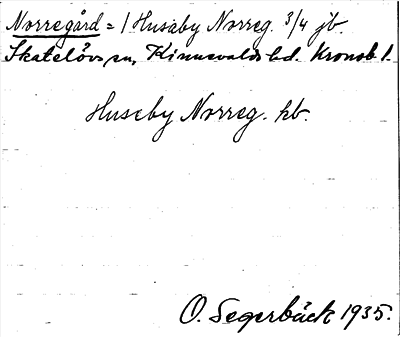 Norregård = 1 Husaby Norreg. 3/4 jb.
Skatelövs sn, Kinnevalds hd. Kronob l.
Huseby Norreg. kb.
O. Segerbäck 1935.